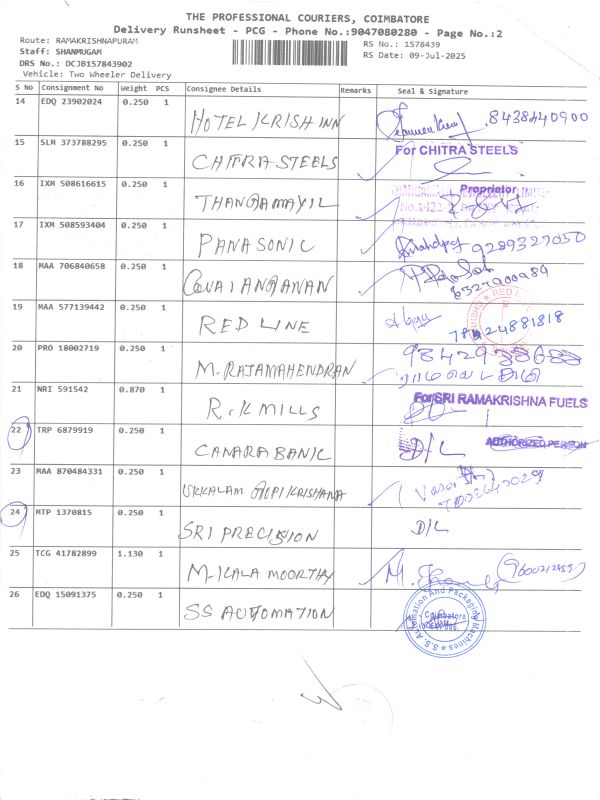 THE PROFESSIONAL COURIERS, COIMBATORE
Delivery Runsheet - PCG - Phone No.:9047080280 - Page No.:2
Route: RAMAKRISHNAPURAM
RS No.: 1578439
Staff: SHANMUGAM
RS Date: 09-Jul-2025
DRS No.: DCJB157843902
Vehicle: Two Wheeler Delivery
S No Consignment No Weight PCS Consignee Details Remarks Seal & Signature
14 EDQ 23902024 0.250 1 HOTEL KRISH INN 8438440900
15 SLM 373788295 0.250 1 CHITRA STEELS For CHITRA STEELS
Proprietor
16 IXM 508616615 0.250 1 THANGAMAYIL
17 IXM 508593404 0.250 1 PANASONIC 9289327050
18 MAA 706840658 0.250 1 COVAI ANGANAN 6327900989
19 MAA 577139442 0.250 1 RED LINE
20 PRO 18002719 0.250 1 M. RAJAMAHENDRAN
21 NRI 591542 0.870 1 R.K MILLS For SRI RAMAKRISHNA FUELS
AUTHORIZED PERSON
22 TRP 6879919 0.250 1 CANARA BANK D/L
23 MAA 870484331 0.250 1 UKKALAM GOPI KRISHANA
24 MTP 1370815 0.250 1 SRI PRECISION D/L
25 TCG 41782899 1.130 1 M. KALA MOORTHY
26 EDQ 15091375 0.250 1 SS AUTOMATION S.S. Automation And Packaging Machines
Coimbatore